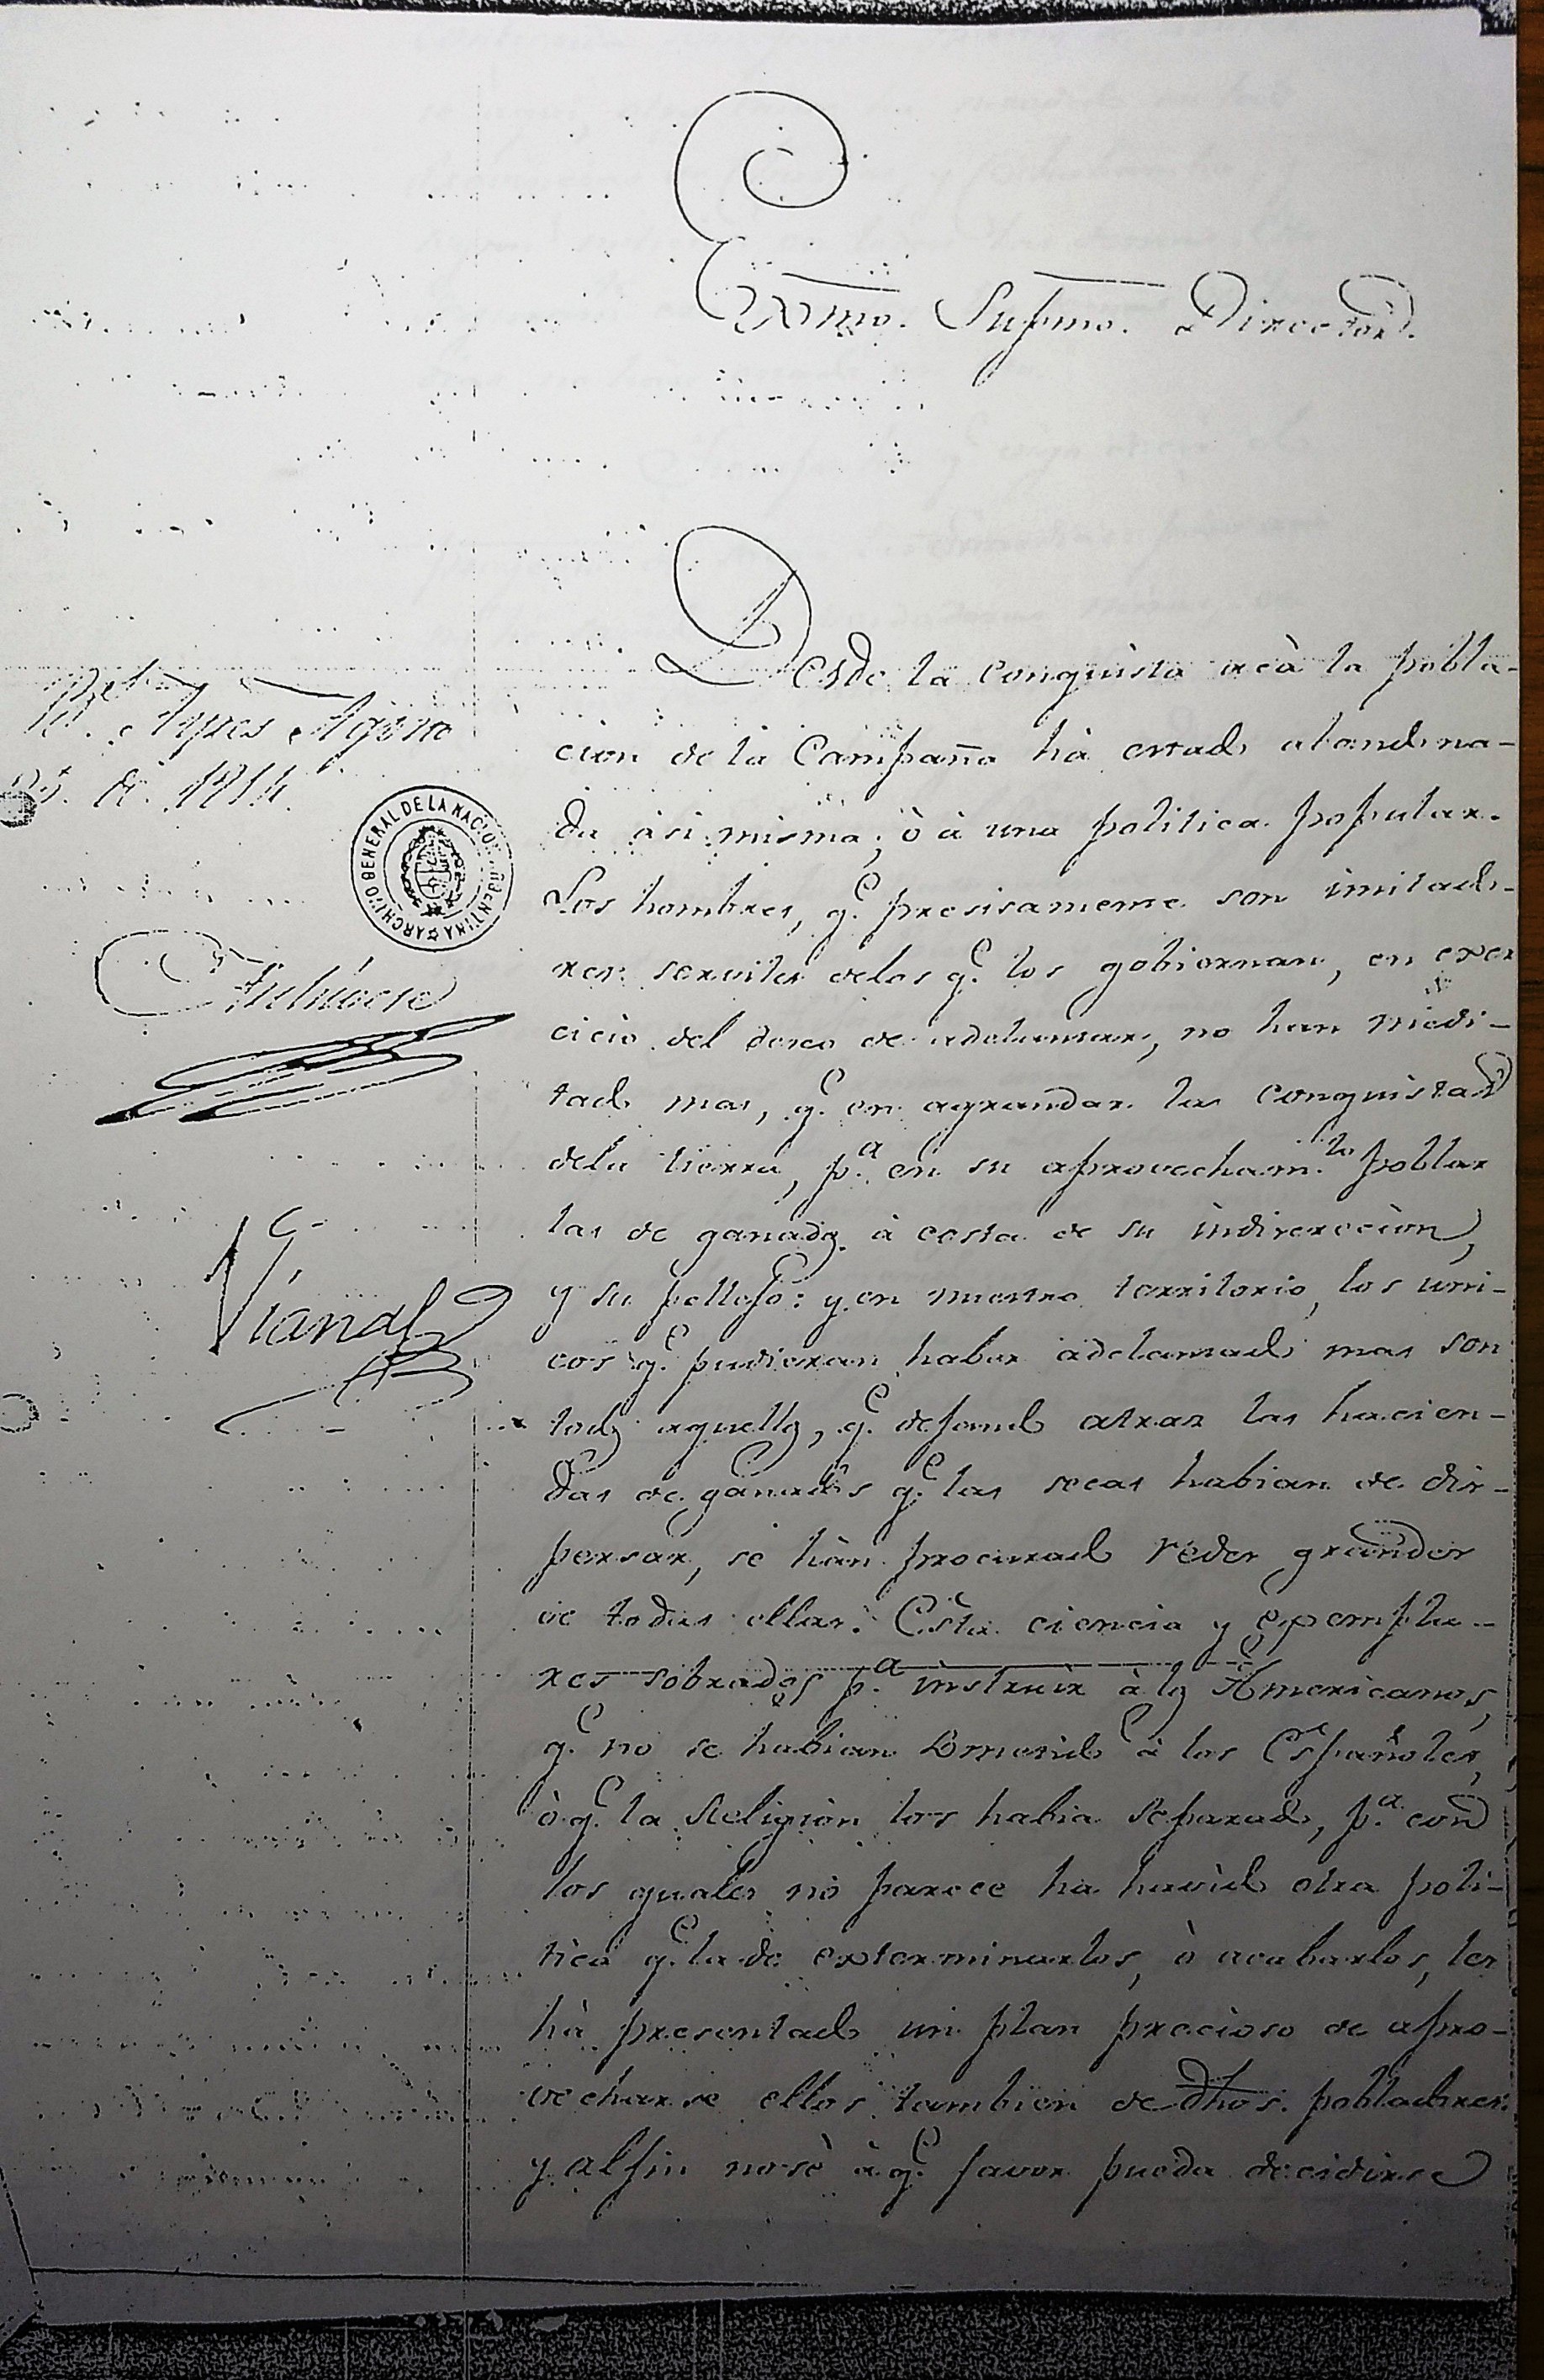 Exmo. Supmo. Director.
Bs. Ayres Agosto
25. de 1814.
Archívese
Viana
ARCHIVO GENERAL DE LA NACION ARGENTINA
Desde la Conquista acà la pobla-
cion de la Campaña hà estado abandona-
da àsi misma; ò à una politica popular.
Los hombres, q.e presisamente son imitado-
res serviles delos q.e los gobiernan, en exer
cicio del deseo de adelantar, no han medi-
tado mas, q.e en agrandar las conquistas
dela tierra, p.a en su aprovecham.to poblar
las de ganados à costa de su indireccion,
y su pellejo: y en nuestro territorio, los uni-
cos q.e pudieran haber adelantado mas son
todos aquellos, q.e dejando atras las hacien-
das de ganados q.e las secas habian de dis-
persar, se hàn procurado redes grandes
de todas ellas. Esta ciencia y exempla-
res sobrados p.a instruir à los Americanos,
q.e no se habian sometido à los Españoles,
ò q.e la Religion los habia separado, p.a con
los quales no parece ha havido otra poli-
tica q.e la de exterminarlos, ò acabarlos, les
hà presentado un plan precioso de apro-
vecharse ellos tambien de dhos. pobladores.
y alfin no sè à q.e favor pueda decidirse